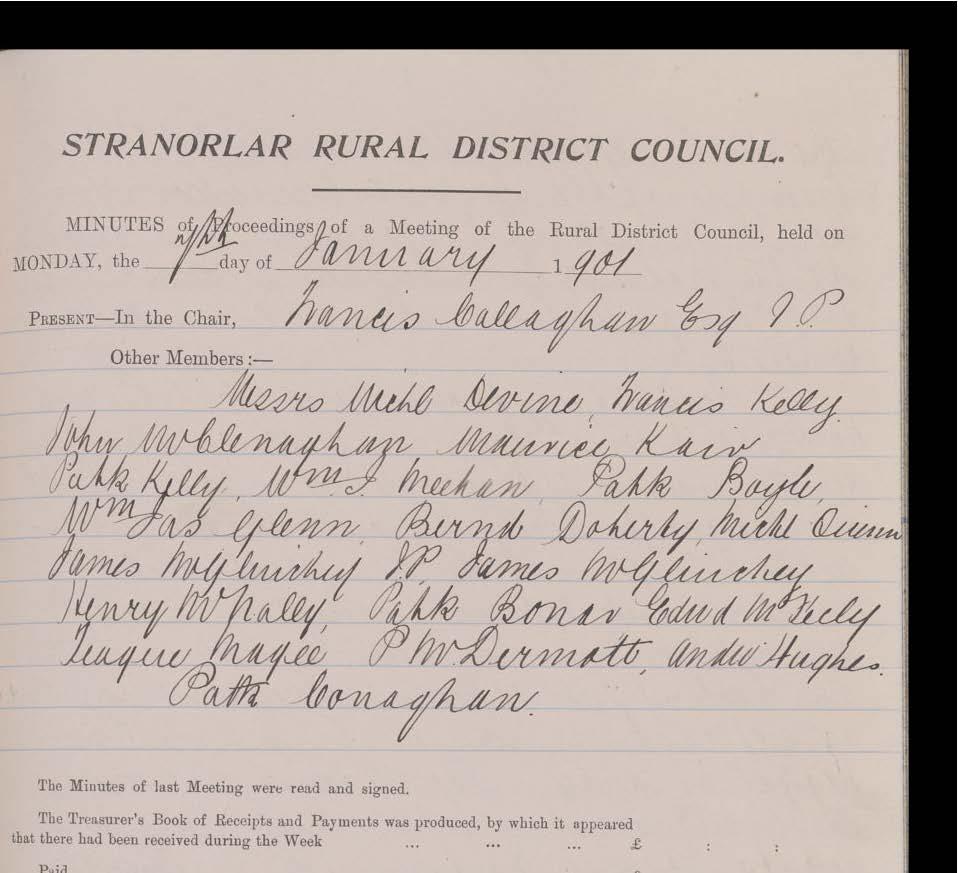 STRANORLAR RURAL DISTRICT COUNCIL.
MINUTES of Proceedings of a Meeting of the Rural District Council, held on
MONDAY, the 7th day of January 1901
PRESENT—In the Chair, Francis Callaghan Esq J.P.
Other Members:—
Messrs Michl Devine, Francis Kelly.
John McClenaghan, Maurice Kair
Patk Kelly, Wm J Meehan, Patk Boyle,
Wm Jas Glenn, Bernd Doherty, Michl Quinn
James McGlinchey J.P, James McGlinchey
Henry McNally, Patk Bonar Edwd
Teague Magee P McDermott, Andw Hughes.
Patk Conaghan.
The Minutes of last Meeting were read and signed.
The Treasurer's Book of Receipts and Payments was produced, by which it appeared
that there had been received during the Week ... ... ... £ : :
Paid